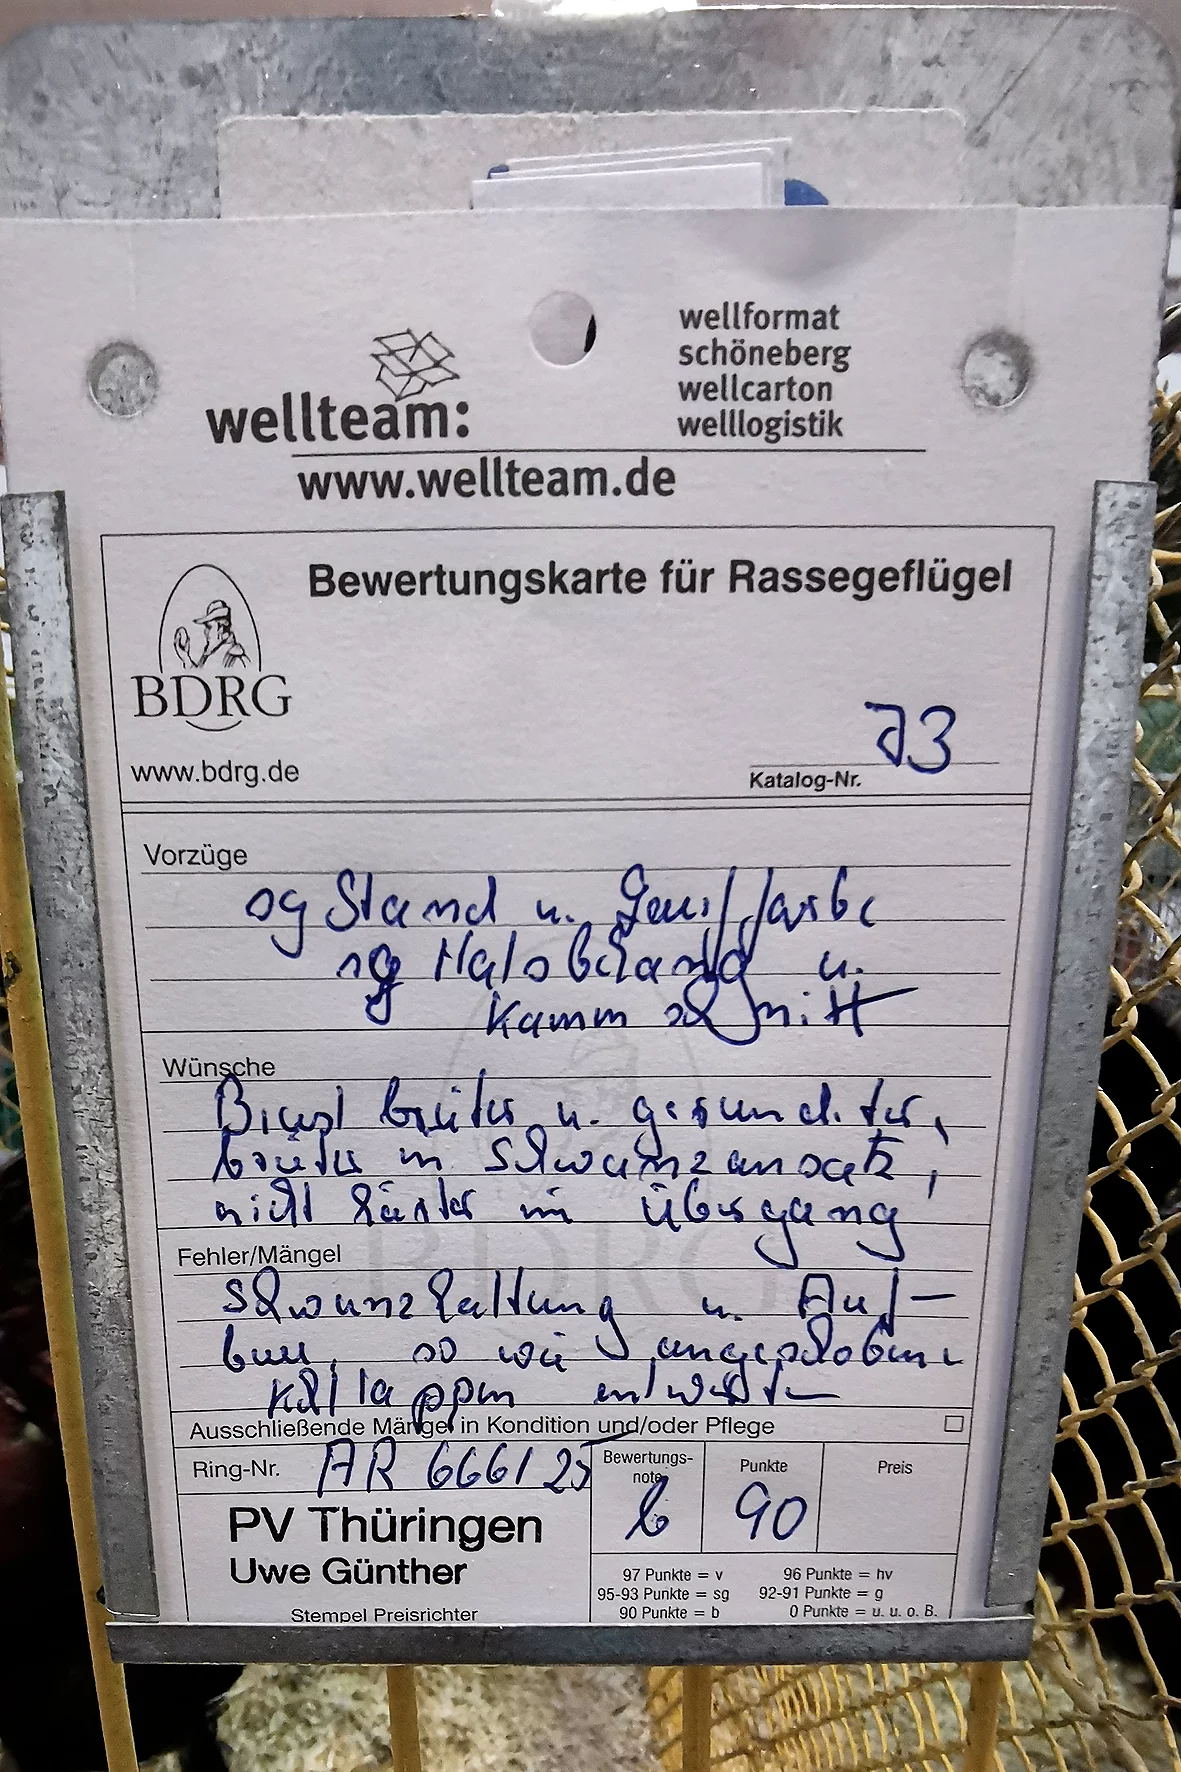 wellteam:
wellformat
schöneberg
wellcarton
welllogistik
www.wellteam.de
Bewertungskarte für Rassegeflügel
BDRG
www.bdrg.de
Katalog-Nr. 73
Vorzüge
sg Stand u. Lauffarbe
sg Halsbehang u.
Kammschnitt
Wünsche
Brust breiter u. gerundeter,
breiter im Schwanzansatz,
nicht härter im Übergang
Fehler/Mängel
Schwanzhaltung u. Auf-
bau, so wie angeschobene
Kehllappen
Ausschließende Mängel in Kondition und/oder Pflege
Ring-Nr. AR 666 / 25
Bewertungs-
note
b
Punkte
90
Preis
PV Thüringen
Uwe Günther
Stempel Preisrichter
97 Punkte = v 96 Punkte = hv
95-93 Punkte = sg 92-91 Punkte = g
90 Punkte = b 0 Punkte = u. u. o. B.